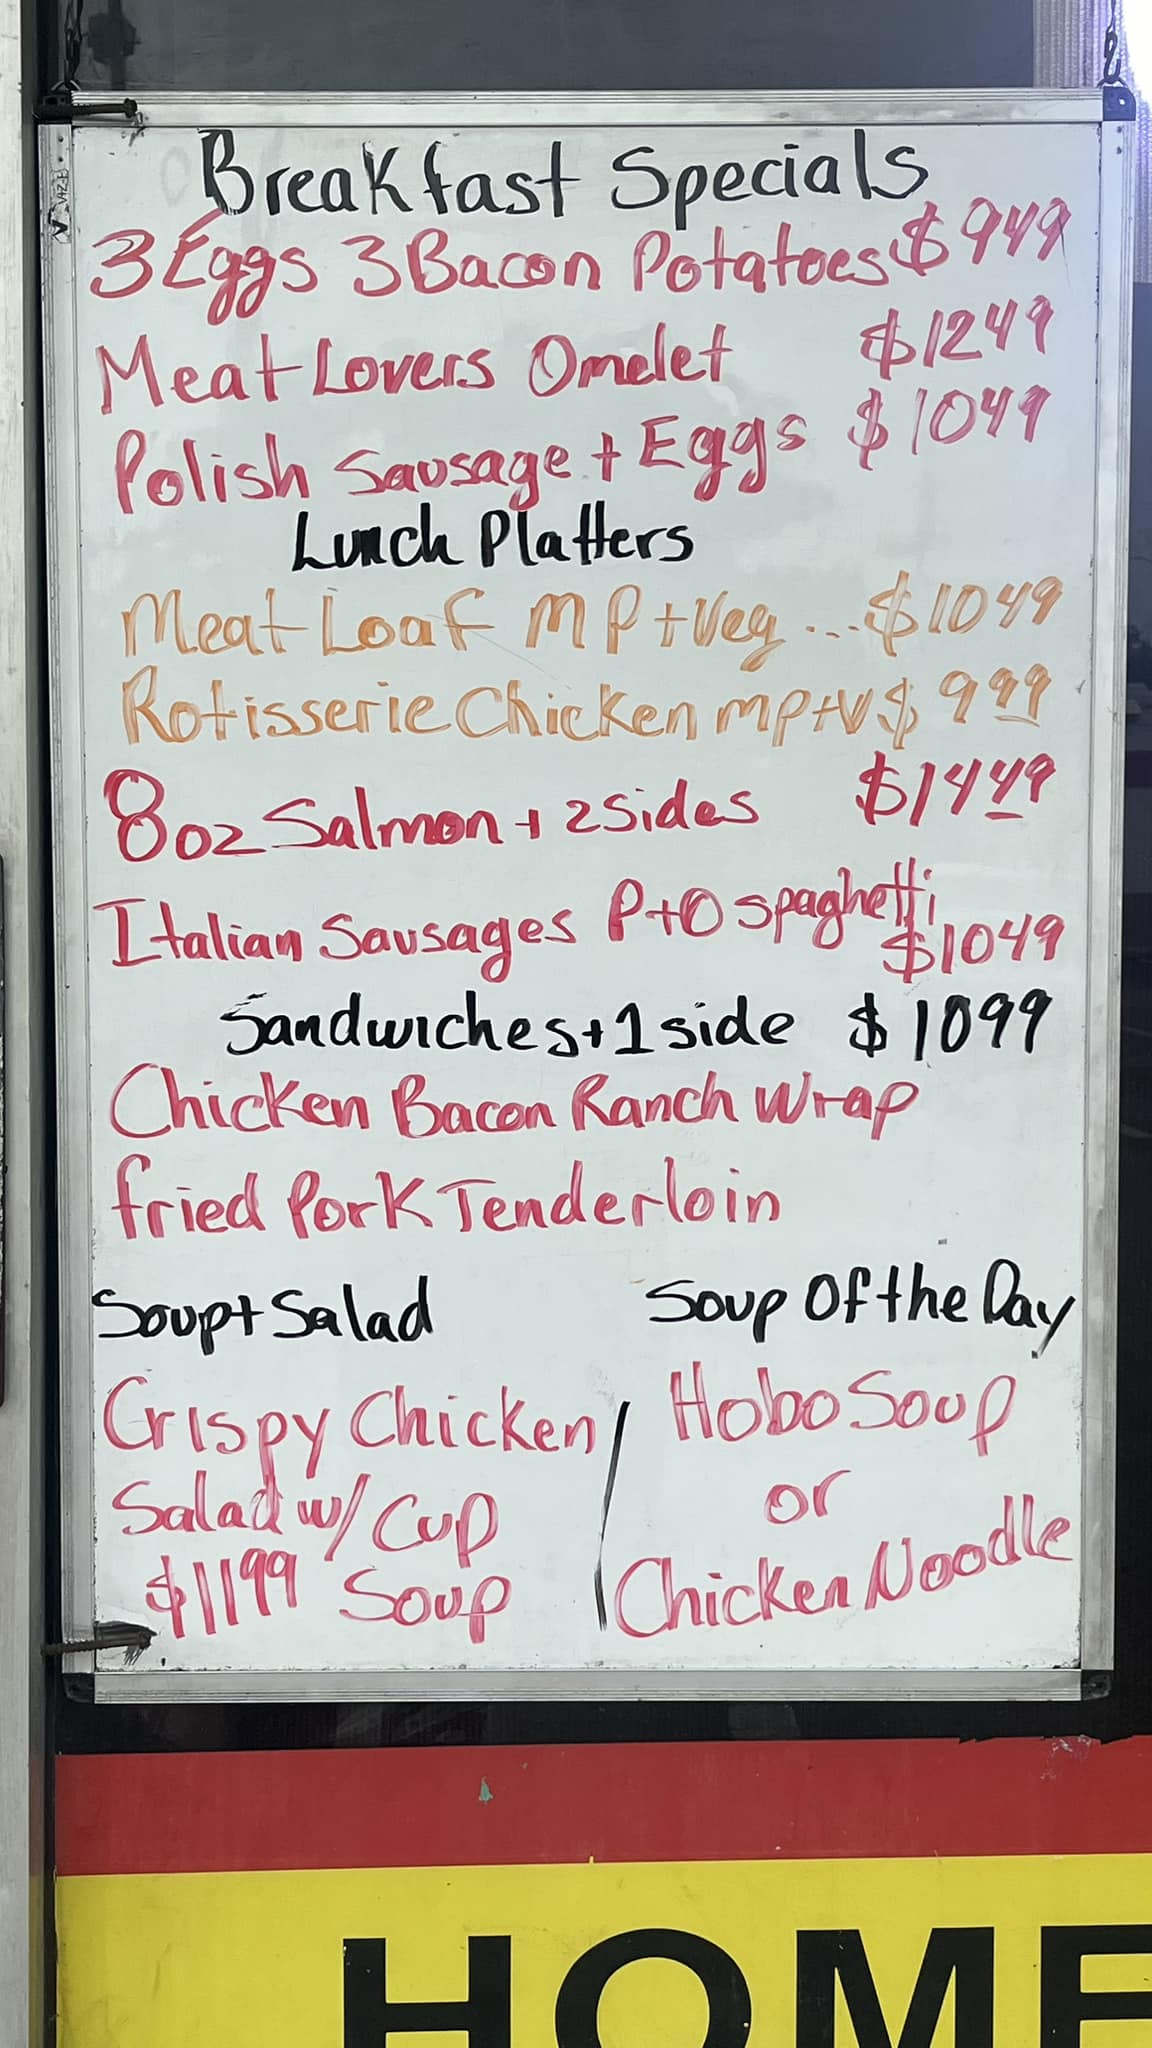 Breakfast Specials
3 Eggs 3 Bacon Potatoes $949
Meat Lovers Omelet $1249
Polish Sausage + Eggs $1049
Lunch Platters
Meat Loaf MP + Veg ... $1049
Rotisserie Chicken mp+V $999
8oz Salmon + 2 Sides $1449
Italian Sausages P+O Spaghetti
$1049
Sandwiches + 1 side $1099
Chicken Bacon Ranch Wrap
fried Pork Tenderloin
Soup + Salad
Crispy Chicken
Salad w/ Cup
$1199 Soup
Soup Of the Day
Hobo Soup
or
Chicken Noodle
HOME